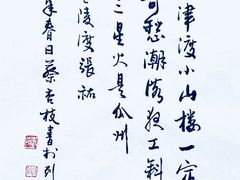 津渡小山樓一宿
可愁潮落夜江斜
三星火是瓜州
陵渡張祜
年春日蔡杏枝書於